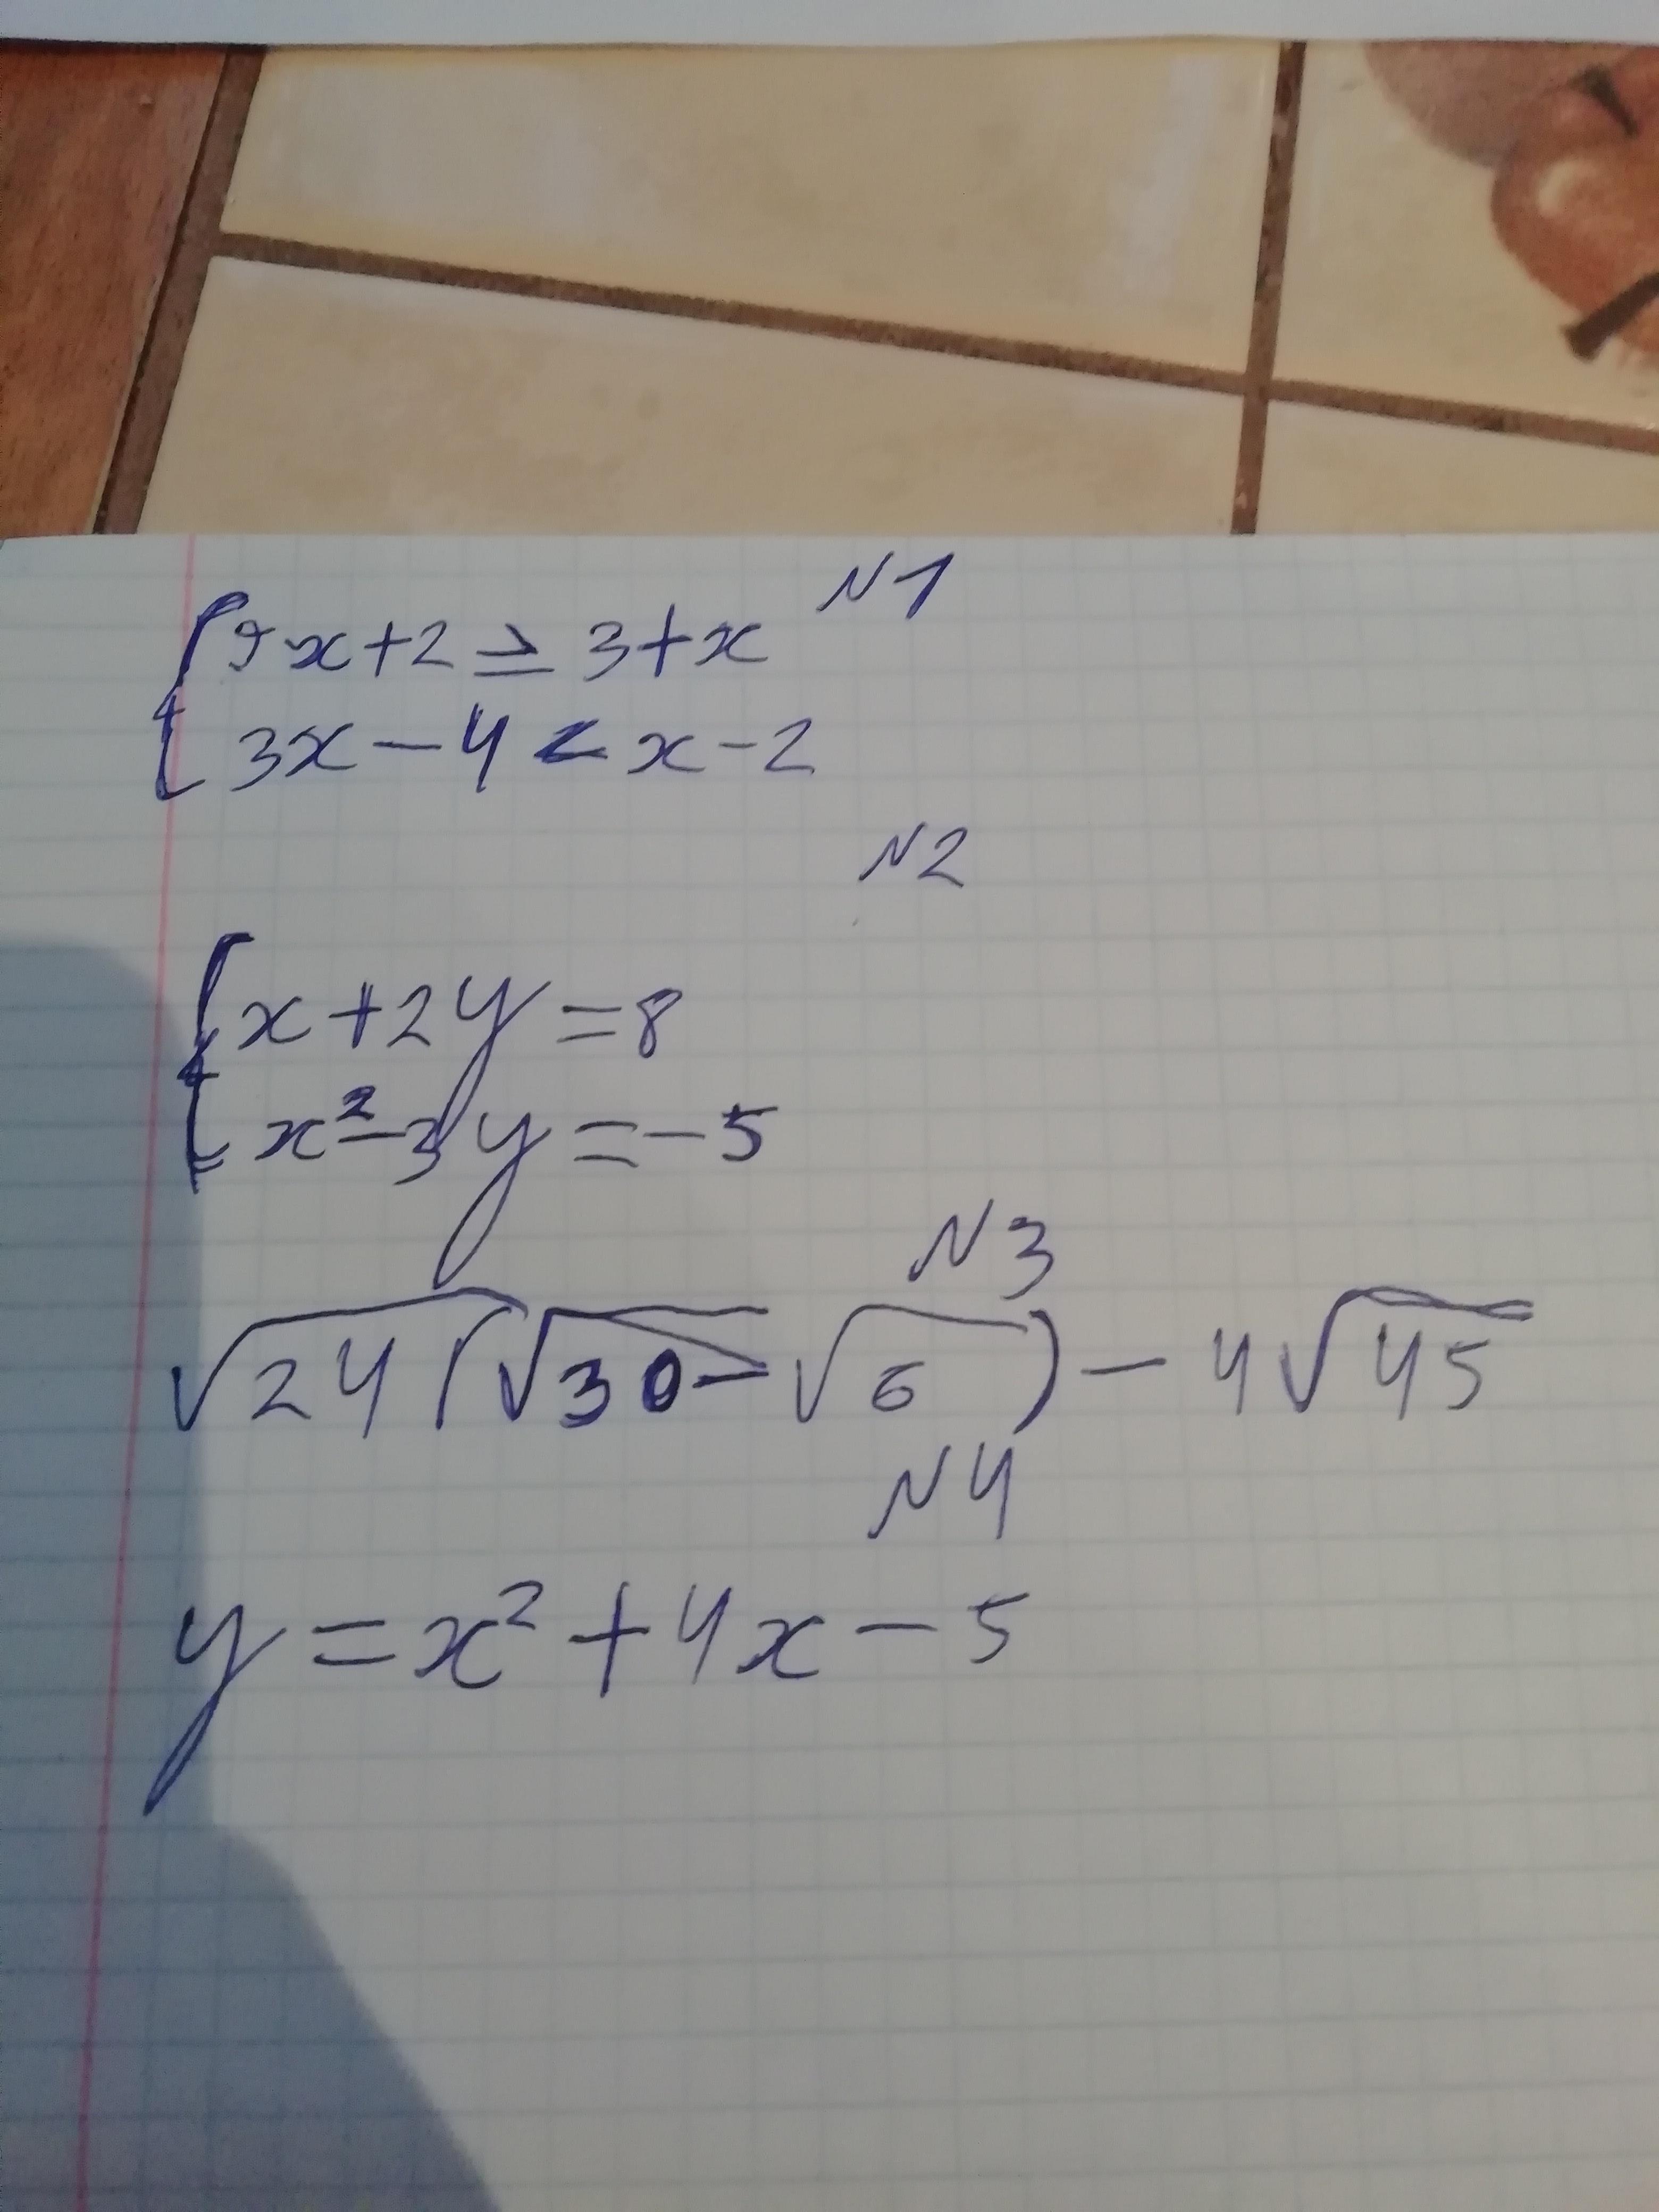 N1
5x+2≥3+x
3x-4<x-2
N2
x+2y=8
x²-3y=-5
N3
√24(√30-√6)-4√45
N4
y=x²+4x-5